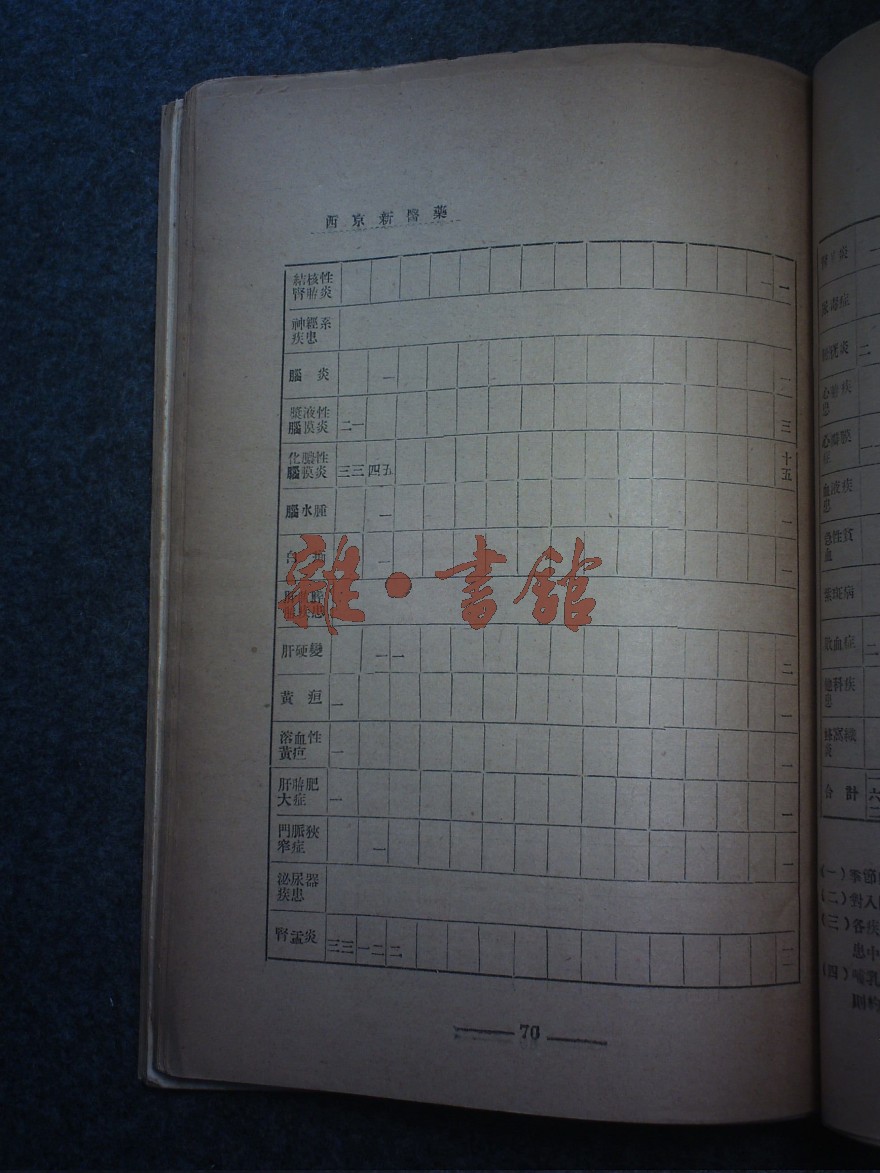 西京新醫藥
結核性 一 一
腎膀炎
神經系
疾患
腦 炎 一
漿液性
腦膜炎 二 一 三
化膿性
腦膜炎 三 三 四 五 十五
腦水腫 一 一
一 一
雜·書館
疾患
肝硬變 一 一 二
黃 疸 一 一
溶血性
黃疸 一 一
肝脾肥
大症 一 一
門脈狹
窄症 一 一
泌尿器
疾患
腎盂炎 三 三 一 二 二
70
炎 一
毒症
炎 二
心 疾
患
心
症
血液疾
患
急性貧
血
紫斑病
敗血症 二
科疾
患
合計 六二
(一)季節
(二)對入
(三)各疾
患中
(四)哺乳